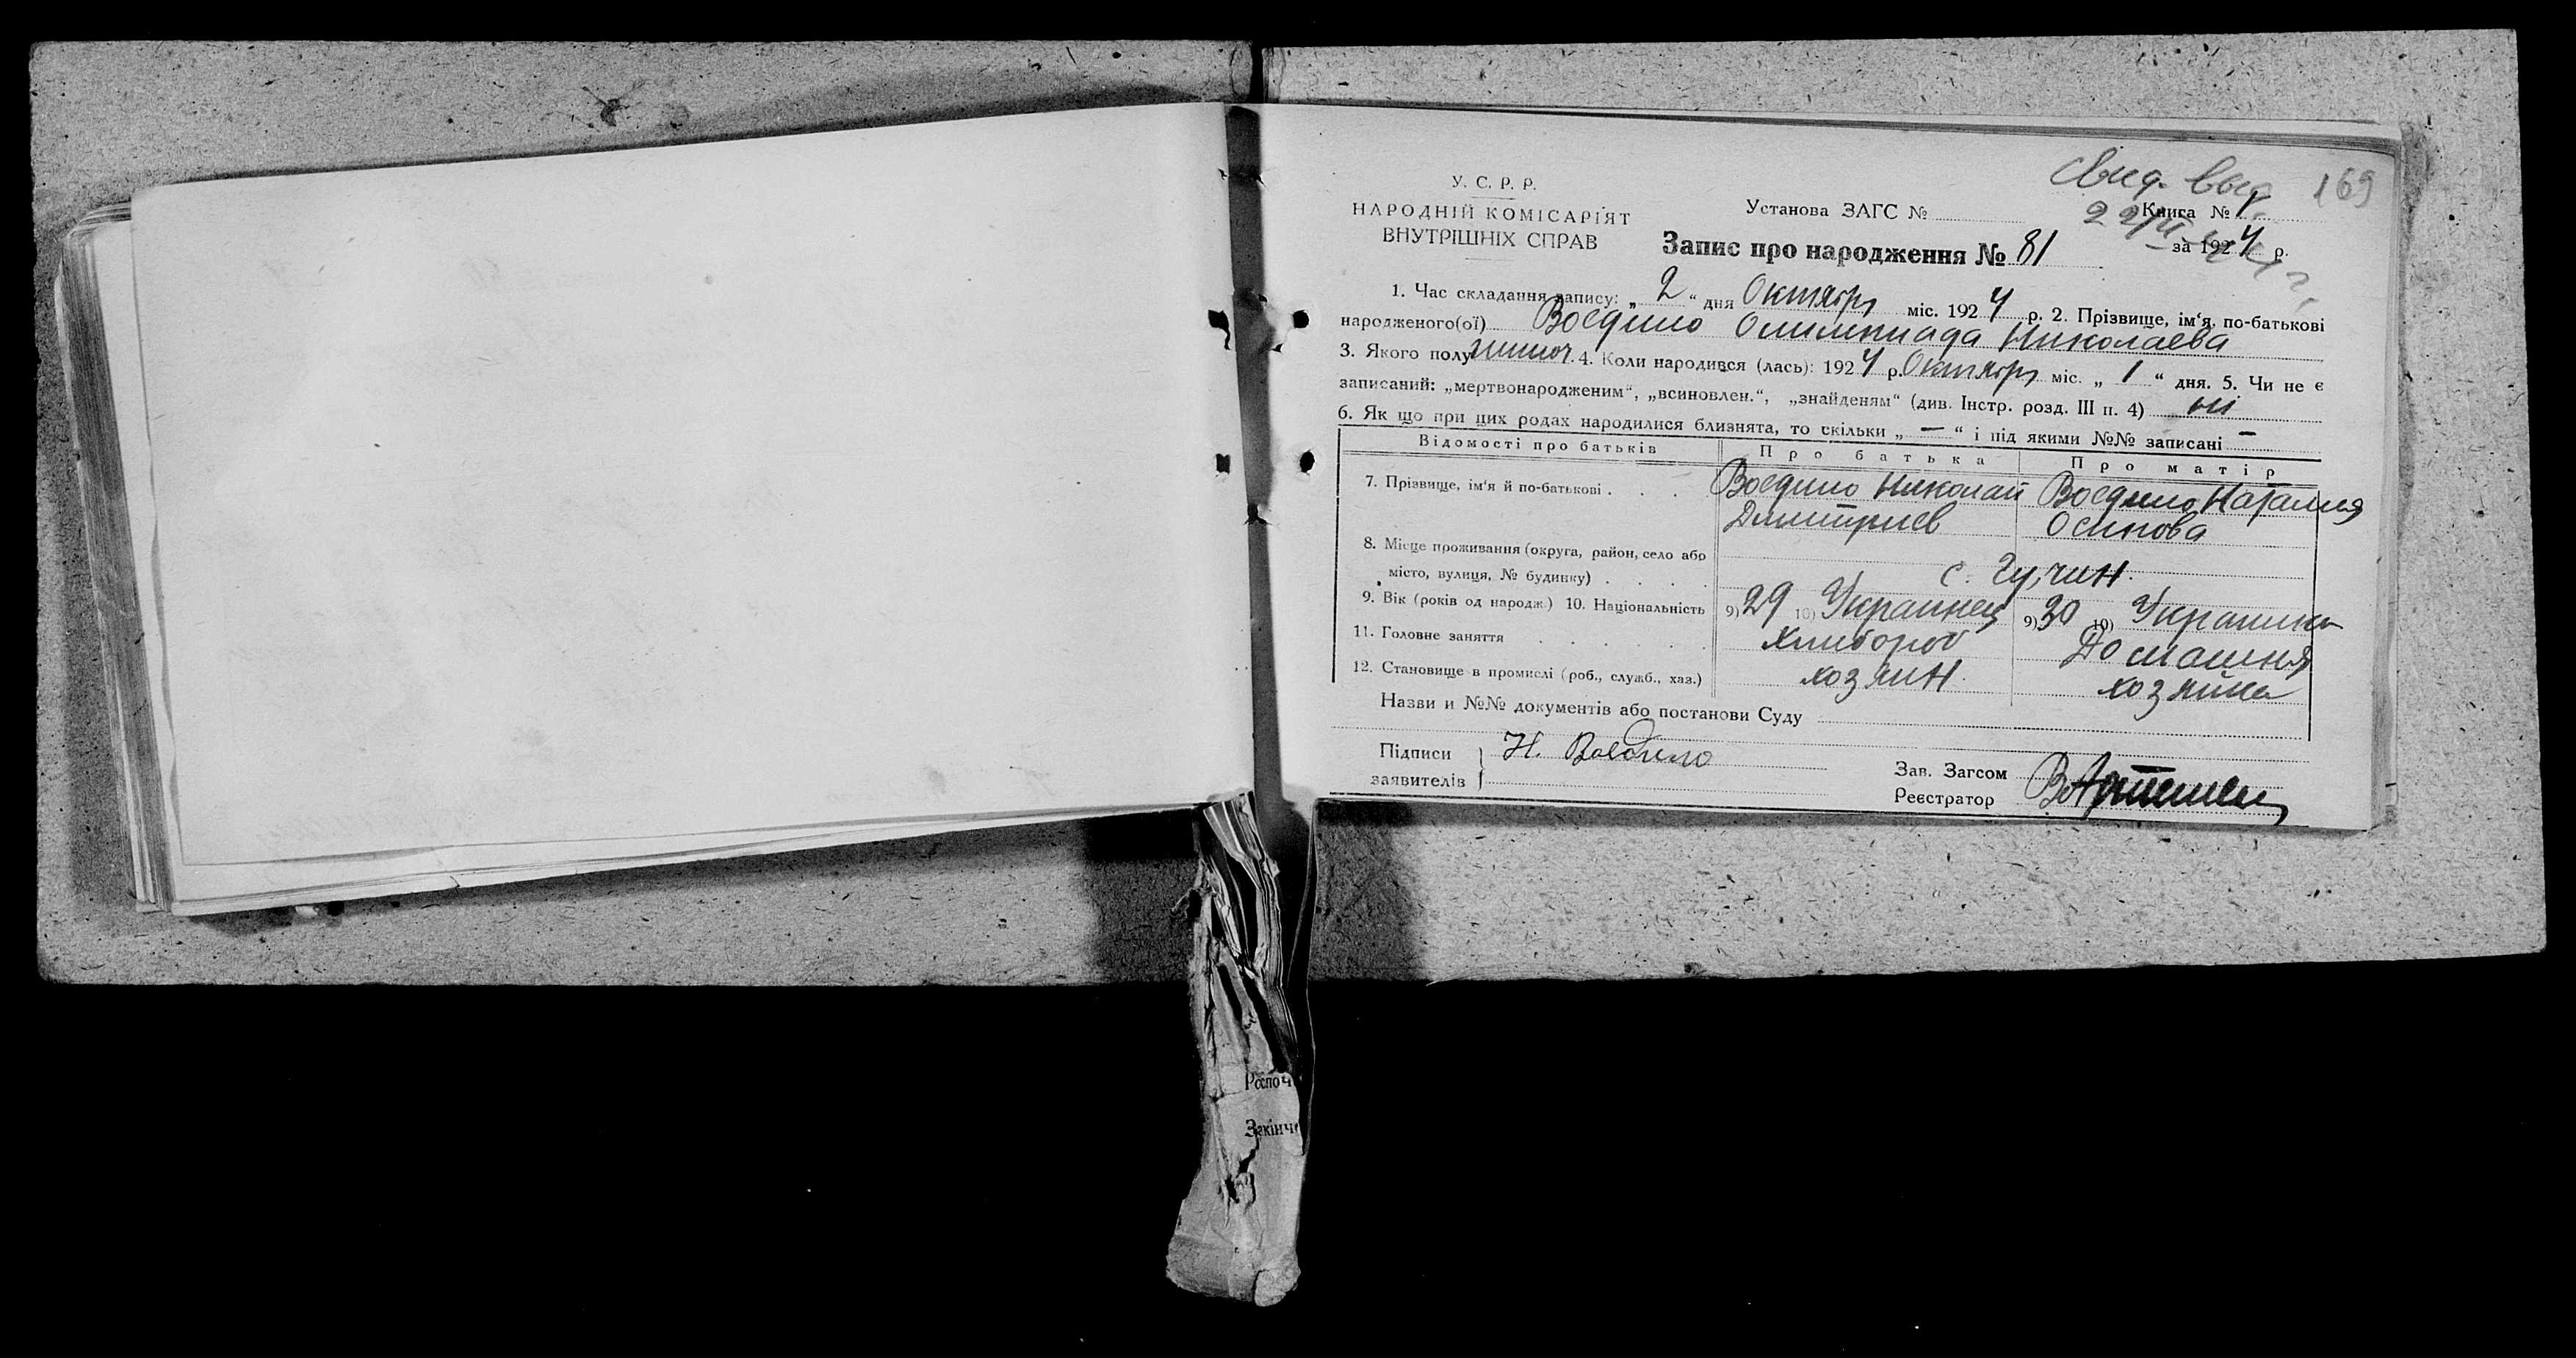 Свид. выд. 169
У. С. Р. Р.
НАРОДНІЙ КОМІСАРІЯТ
ВНУТРІШНІХ СПРАВ
Установа ЗАГС №
Книга № 1
22/
Запис про народження № 81
за 1924 р.
1. Час складання запису: „ 2 “ дня Октября міс. 1924 р. 2. Прізвище, ім‘я, по-батькові
народженого(ої) Воедило Олимпиада Николаева
3. Якого полу 4. Коли народився (лась): 1924 р. Октября міс. „ 1 “ дня. 5. Чи не є
записаний: „мертвонародженим“, „всиновлен.“, „знайденям“ (див. Інстр. розд. III п. 4) ні
6. Як що при цих родах народилися близнята, то скільки „ — “ і під якими №№ записані —
Відомості про батьків Про батька Про матір
7. Прізвище, ім‘я й по-батькові . . . Воедило Николай Воедило Наталия
Дмитриев Осипова
8. Місце проживання (округа, район, село або
місто, вулиця, № будинку) . . . . с. Гучин.
9. Вік (років од народж.) 10. Національність 9) 29 10) Украинец 9) 30 10) Украинка
11. Головне заняття . . . . . Хлибороб Домашняя
12. Становище в промислі (роб., служб., хаз.) хозяин. хозяйка
Назви и №№ документів або постанови Суду
Підписи Н. Воедило
заявителів
Зав. Загсом
Реєстратор
Роспоч
Закінч